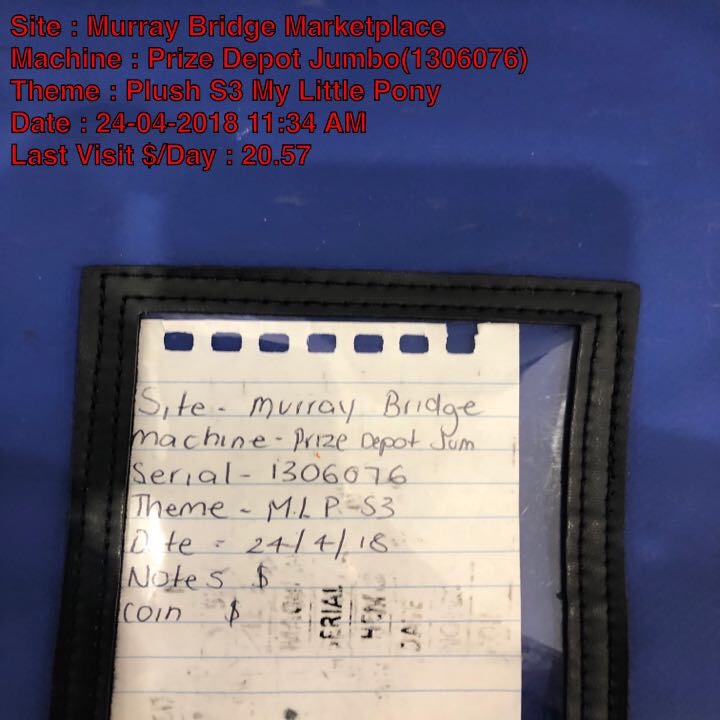 Site : Murray Bridge Marketplace
Machine : Prize Depot Jumbo(1306076)
Theme : Plush S3 My Little Pony
Date : 24-04-2018 11:34 AM
Last Visit $/Day : 20.57
Site - Murray Bridge
machine - Prize Depot Jum
Serial - 1306076
Theme - M.L.P-S3
Date = 24/4/18
Notes $
coin $
SERIAL